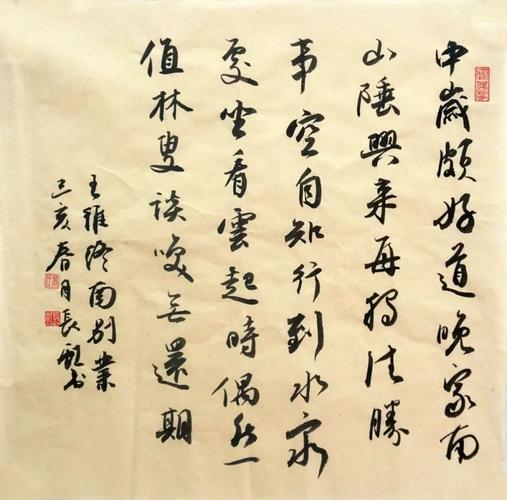 中歲頗好道晚家南
山陲興来每獨往勝
事空自知行到水窮
處坐看雲起時偶然一
值林叟談笑無還期
王維終南別業
己亥春月長书